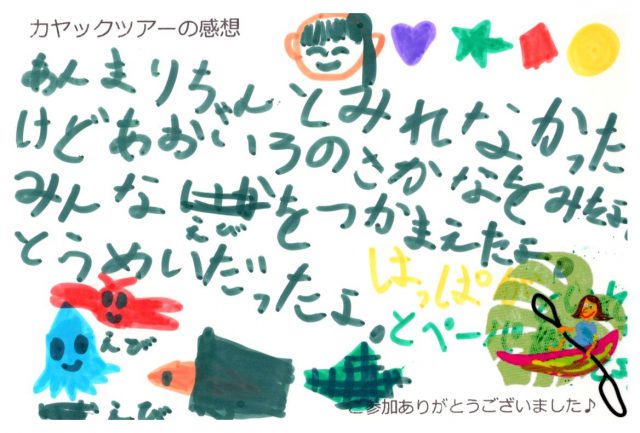 カヤックツアーの感想
あんまりちゃんとみれなかった
けどあおいろのさかなをみたよ
みんなをつかまえたよ。
えび
とうめいだったよ。
はっぱ
とぺー
えび
えび
ご参加ありがとうございました♪